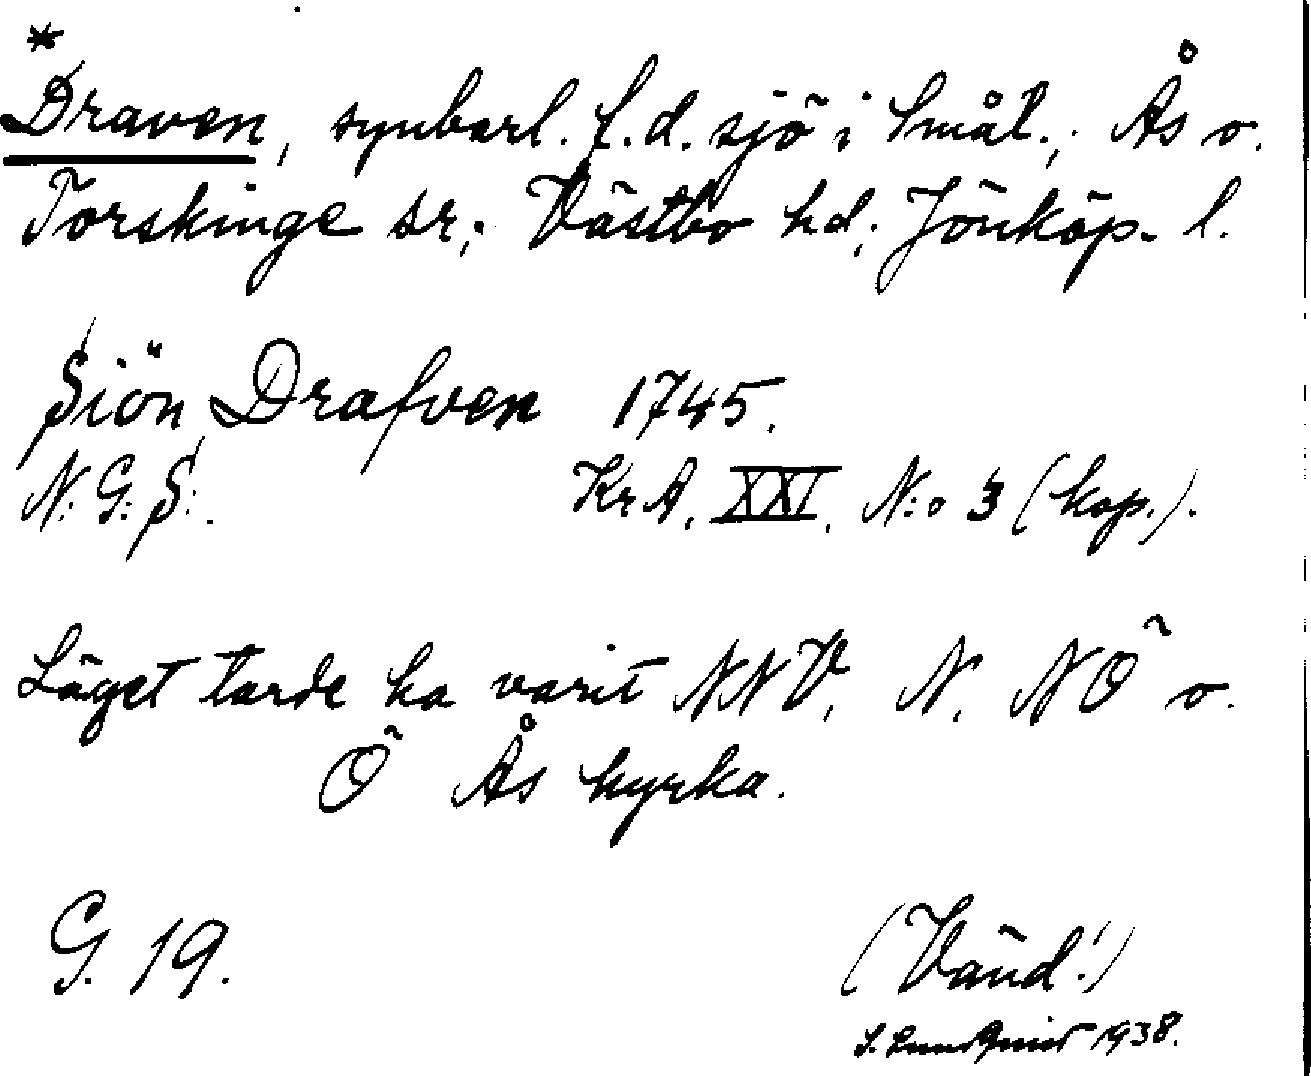 *
Draven, synbarl. f.d. sjö i Smål.; Ås o.
Torskinge sr; Västbo hd; Jönköp. l.
Siön Drafven 1745.
N: G: S:. KrA. XXI, N:o 3 (kop.).
Läget torde ha varit NNV, N, NÖ o.
Ö Ås kyrka.
G. 19. (Vänd!)
S. Lundquist 1938.